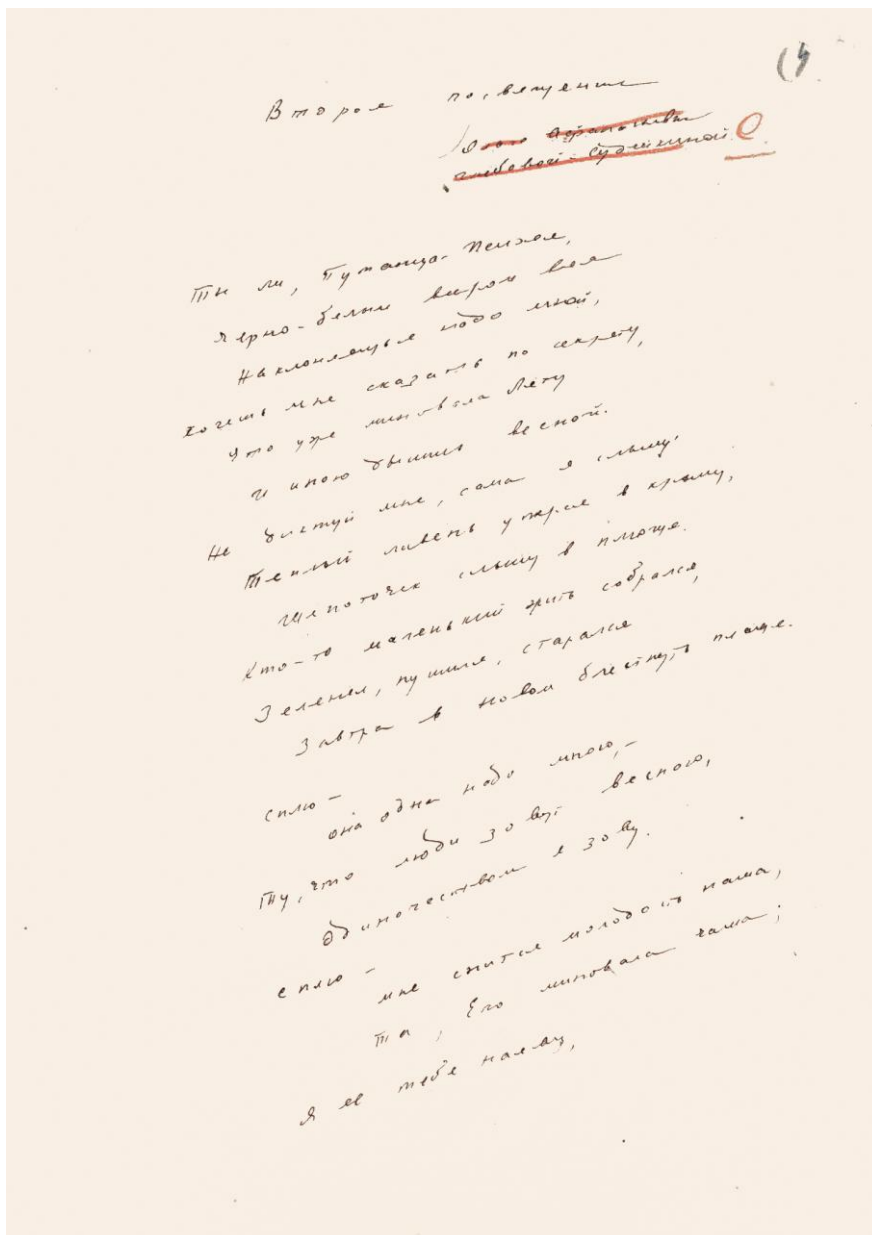 Второе посвящение
Ольге Афанасьевне
Глебовой-Судейкиной
Ты ли, Путаница-Психея,
Черно-белым веером вея
Наклоняешься надо мной,
Хочешь мне сказать по секрету,
Что уже миновала Лету
И иною дышишь весной.
Не диктуй мне, сама я слышу.
Теплый ливень уперся в крышу,
Шепоточек слышу в плюще.
Кто-то маленький жить собрался,
Зеленел, пушился, старался
Завтра в новом блеснуть плаще.
Сплю –
она одна надо мною, –
Ту, что люди зовут весною,
Одиночеством я зову.
Сплю –
мне снится молодость наша,
Та, Его миновала чаша;
Я ее тебе наяву,